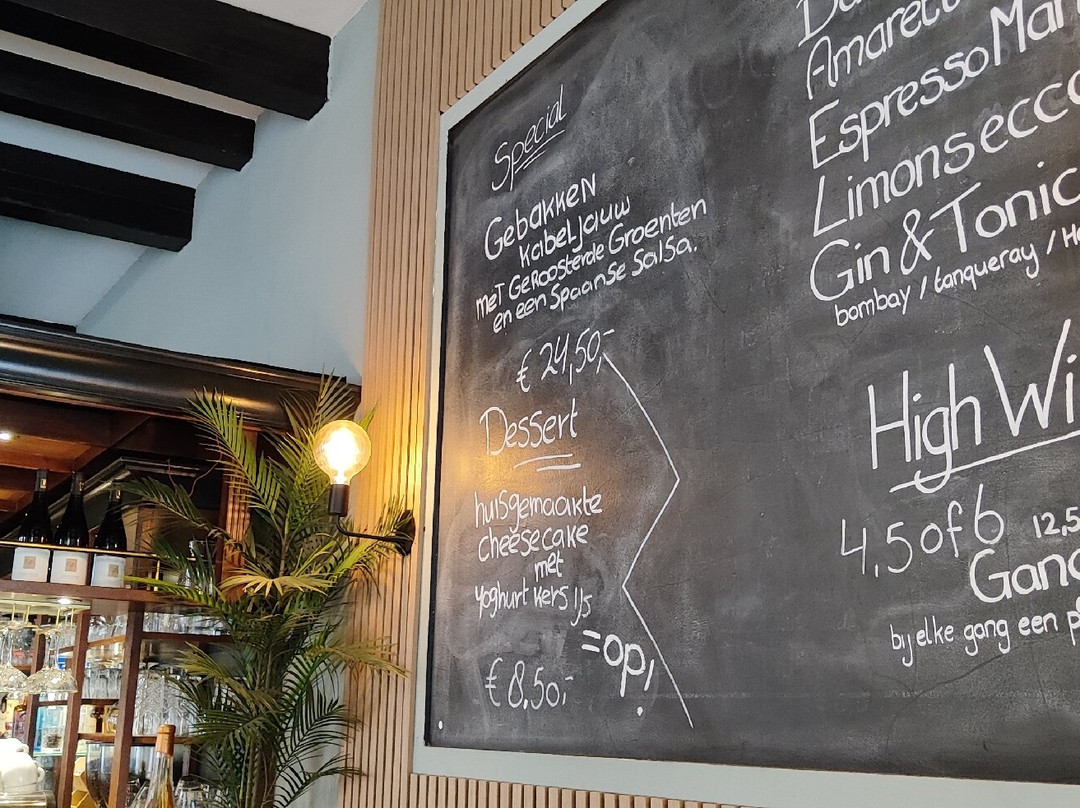 Special
Gebakken
Kabeljauw
met Geroosterde Groenten
en een Spaanse Salsa.
€ 24,50,-
Dessert
huisgemaakte
cheesecake
met
yoghurt kers ijs
=op!
€ 8,50,-
Amarett
Espresso Mar
Limonsecco
Gin & Tonic
bombay / tanqueray / He
High Wi
4, 5 of 6
12,5
Gang
bij elke gang een p